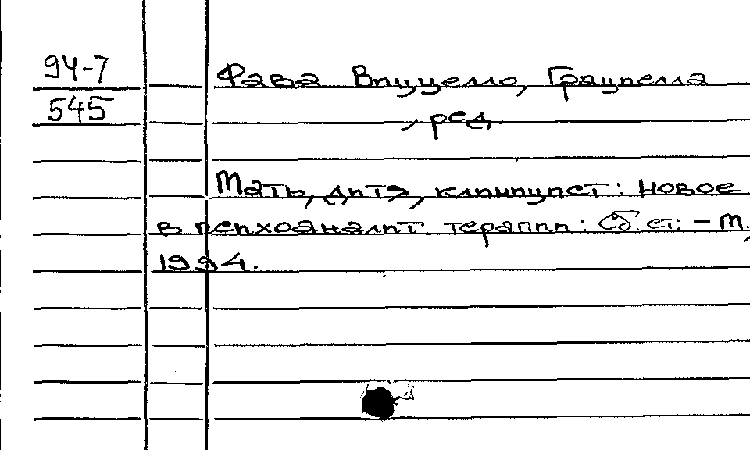 94-7
545
Фава Виццелло, Грациелла
, ред.
Мать, дитя, клиницист: новое
в психоаналит. терапии: Сб. ст. - М.,
1994.